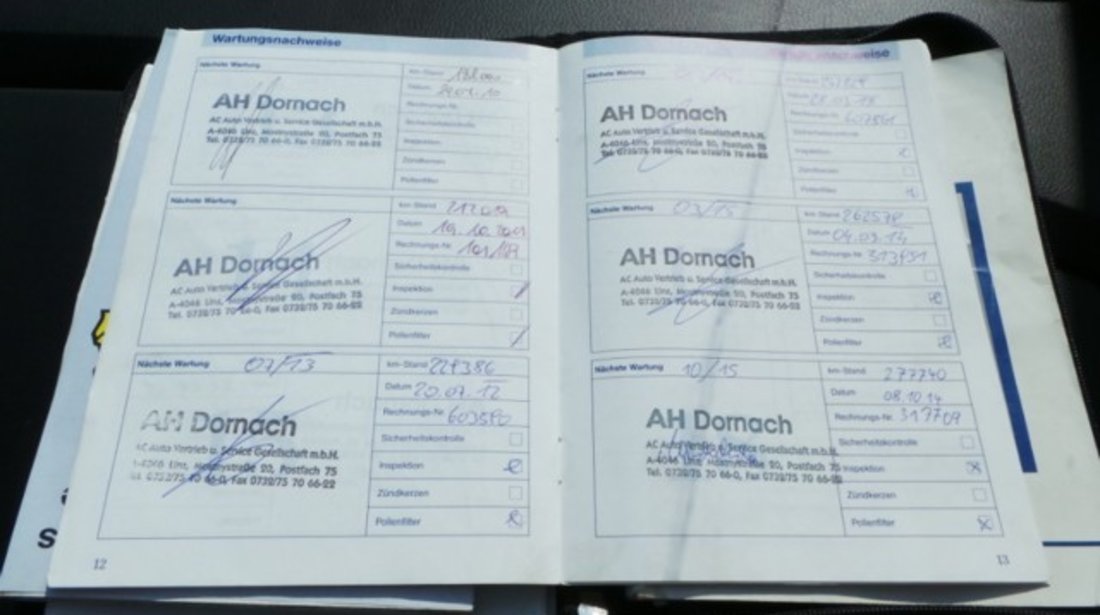 Wartungsnachweise
Nächste Wartung
AH Dornach
AC Auto Vertrieb u. Service Gesellschaft m.b.H.
A-4040 Linz, 20, Postfach 75
Tel. 0732/75 70 66-0, Fax 0732/75 70 66-22
km-Stand
Datum
Rechnungs-Nr.
Sicherheitskontrolle
Inspektion
Zündkerzen
Pollenfilter
Nächste Wartung
AH Dornach
AC Auto Vertrieb u. Service Gesellschaft m.b.H.
A-4046 Linz, 20, Postfach 75
Tel. 0732/75 70 66-0, Fax 0732/75 70 66-22
km-Stand
Datum 19.10.
Rechnungs-Nr.
Sicherheitskontrolle
Inspektion
Zündkerzen
Pollenfilter
Nächste Wartung 07/13
AH Dornach
AC Auto Vertrieb u. Service Gesellschaft m.b.H.
20, Postfach 75
66-0, Fax 0732/75 70 66-22
km-Stand 229386
Datum 20.07.12
Rechnungs-Nr.
Sicherheitskontrolle
Inspektion
Zündkerzen
Pollenfilter
12
Nächste Wartung
AH Dornach
AC Auto Vertrieb u. Service Gesellschaft m.b.H.
20, Postfach 75
Tel. 0732/75 70 66-0, Fax 0732/75 70 66-22
km-Stand
Datum
Rechnungs-Nr.
Sicherheitskontrolle
Inspektion
Zündkerzen
Pollenfilter
Nächste Wartung 03/15
AH Dornach
AC Auto Vertrieb u. Service Gesellschaft m.b.H.
A-4046 Linz, 20, Postfach 75
Tel. 0732/75 70 66-0, Fax 0732/75 70 66-22
km-Stand 262578
Datum 04.03.14
Rechnungs-Nr. 313951
Sicherheitskontrolle
Inspektion
Zündkerzen
Pollenfilter
Nächste Wartung 10/15
AH Dornach
AC Auto Vertrieb u. Service Gesellschaft m.b.H.
A-4046 Linz, 20, Postfach 75
Tel. 0732/75 70 66-0, Fax 0732/75 70 66-22
km-Stand 277740
Datum 08.10.14
Rechnungs-Nr. 319709
Sicherheitskontrolle
Inspektion
Zündkerzen
Pollenfilter
13